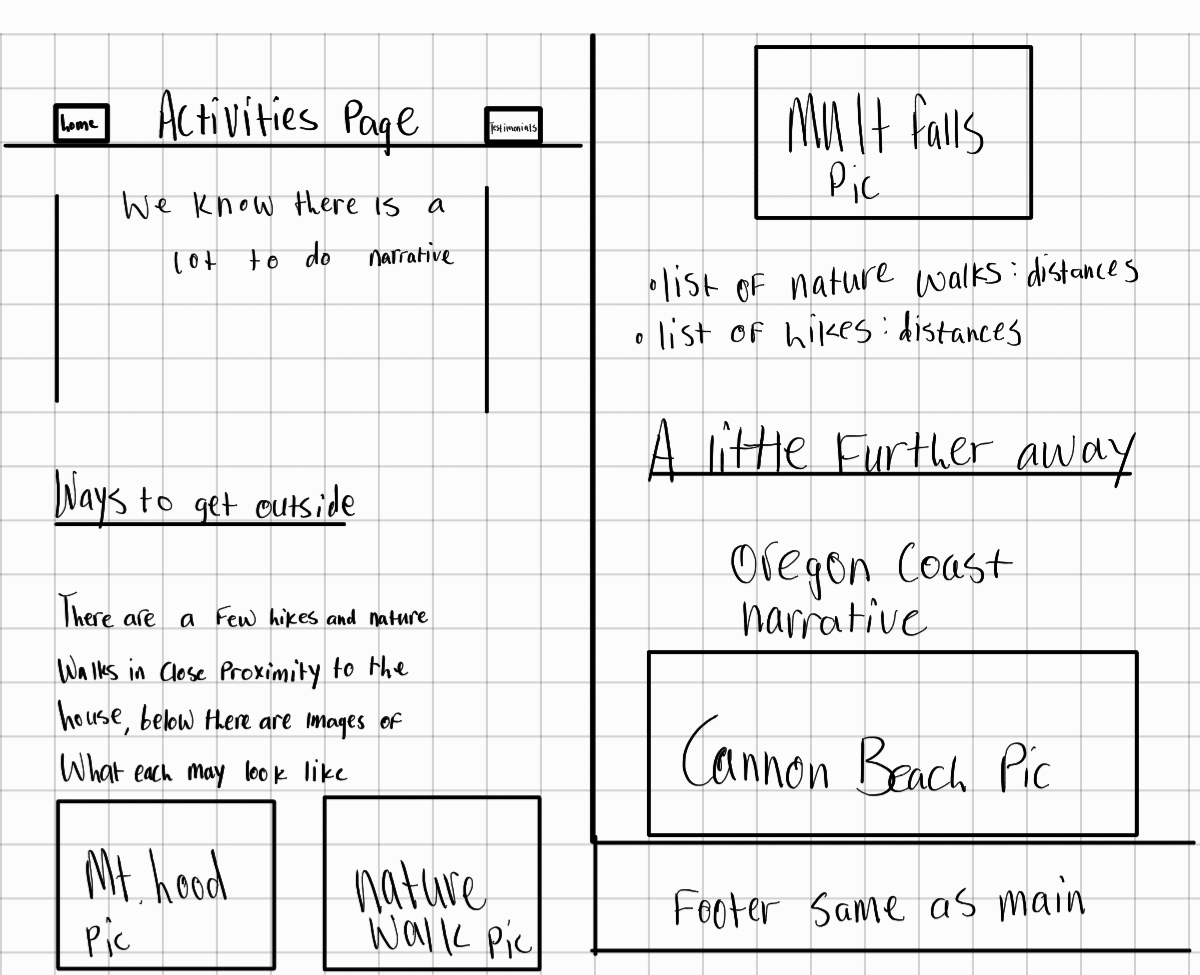 home
Activities Page
Testimonials
We know there is a
lot to do narrative
Ways to get outside
There are a few hikes and nature
Walks in close proximity to the
house, below there are images of
What each may look like
Mt. hood
pic
nature
walk pic
Mult falls
pic
• list of nature walks: distances
• list of hikes: distances
A little Further away
Oregon Coast
narrative
Cannon Beach Pic
Footer same as main